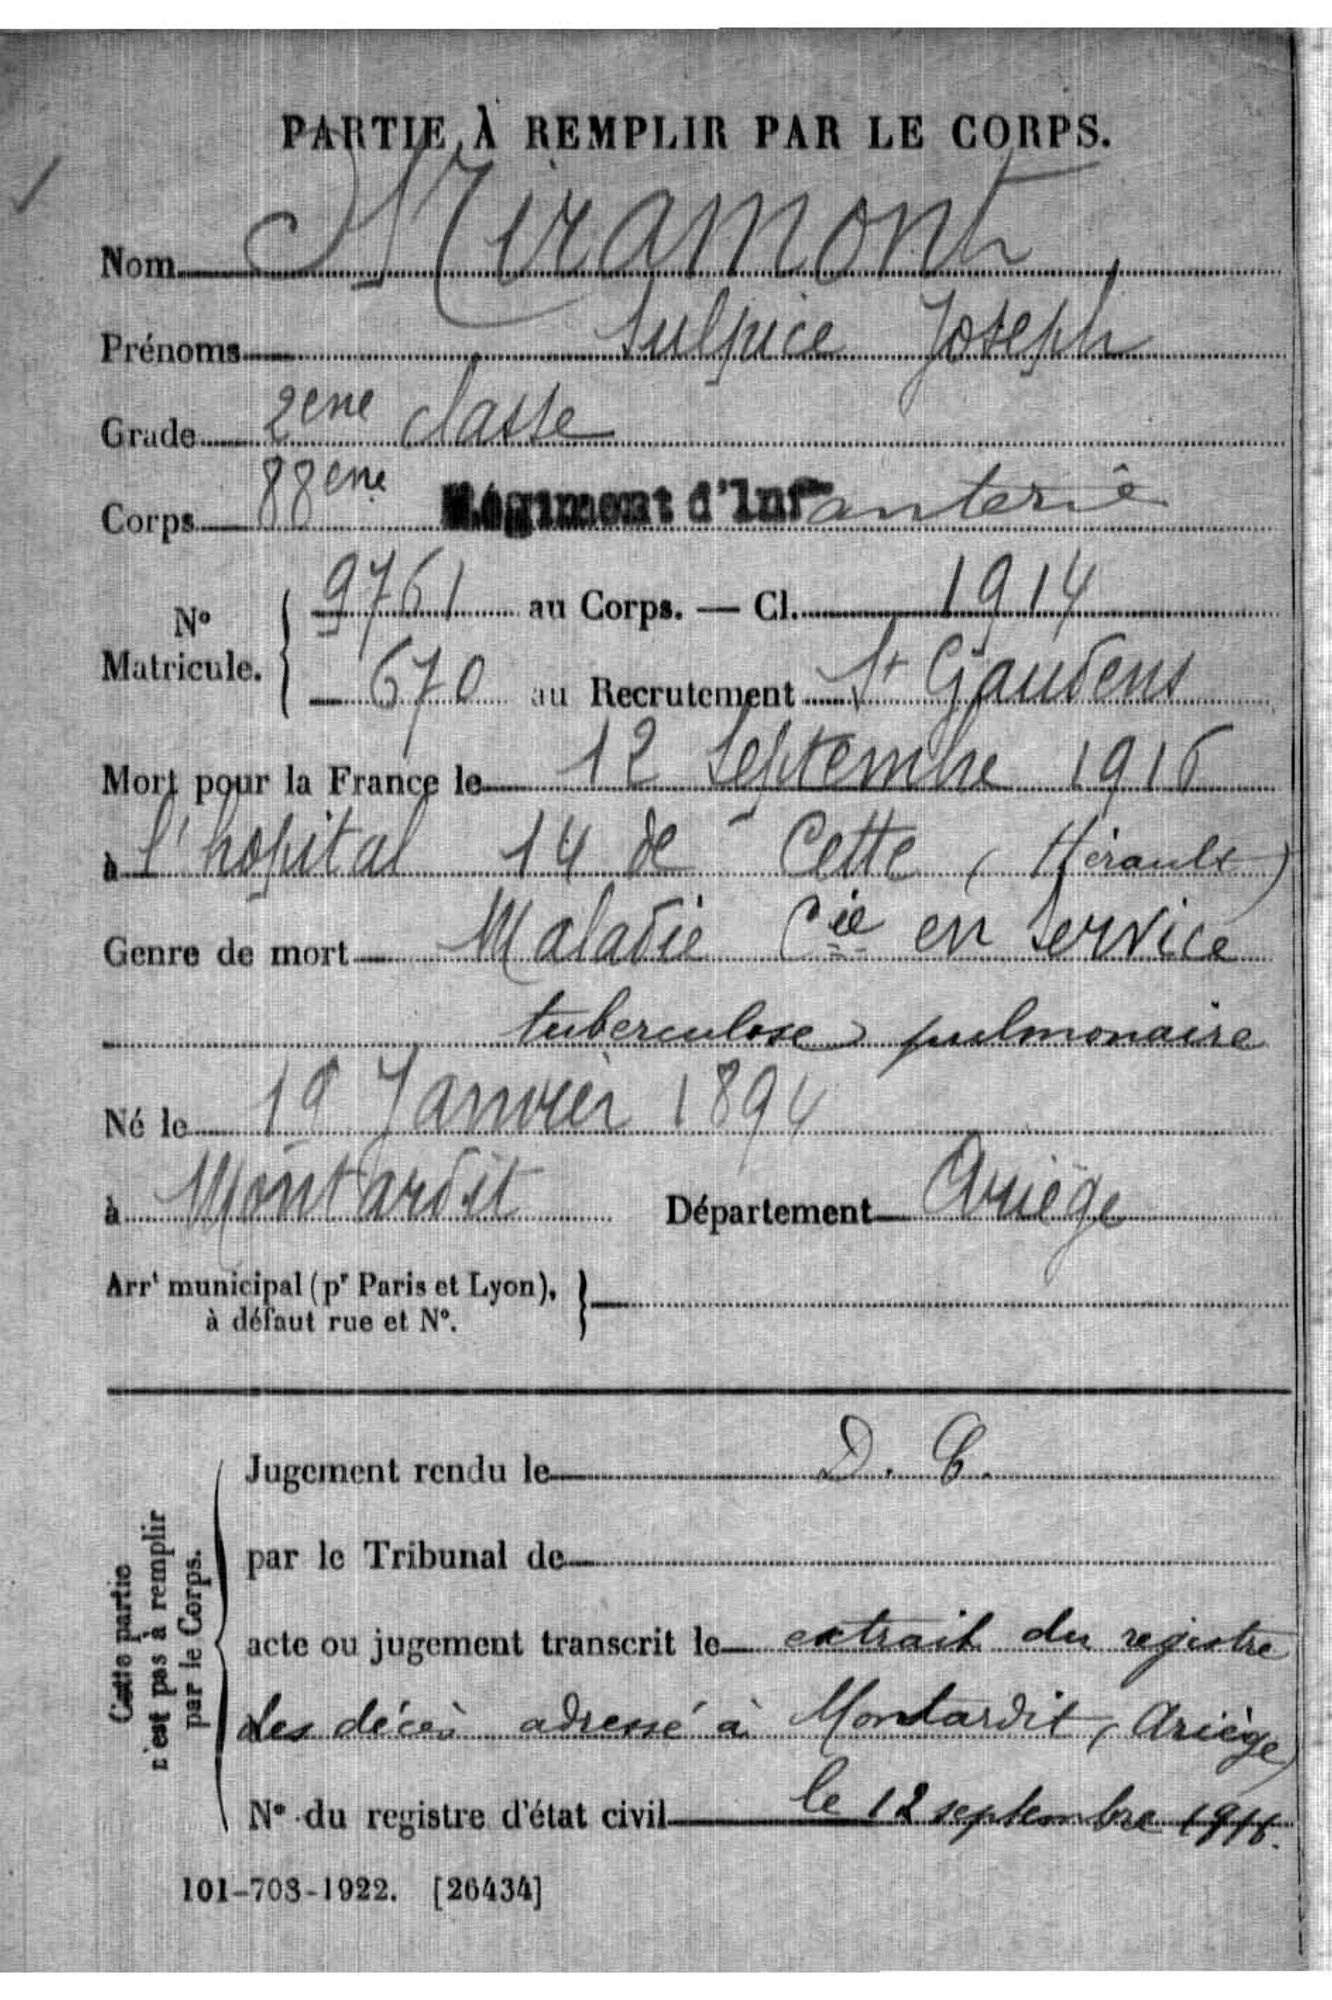 PARTIE À REMPLIR PAR LE CORPS.
Nom Miramont
Prénoms Sulpice Joseph
Grade 2ème classe
Corps 88ème Régiment d'Infanterie
N° Matricule. { 9761 au Corps. — Cl. 1914
670 au Recrutement St Gaudens
Mort pour la France le 12 Septembre 1916
à l'hopital 14 de Cette (Hérault)
Genre de mort Maladie Cée en service
tuberculose pulmonaire
Né le 19 Janvier 1894
à Montardit Département Ariège
Arrt municipal (pr Paris et Lyon),
à défaut rue et N°.
Cette partie
n'est pas à remplir
par le Corps.
Jugement rendu le D. C.
par le Tribunal de
acte ou jugement transcrit le extrait du registre
des décès adressé à Montardit (Ariège)
N° du registre d'état civil le 12 septembre 1916.
101-708-1922. [26434]